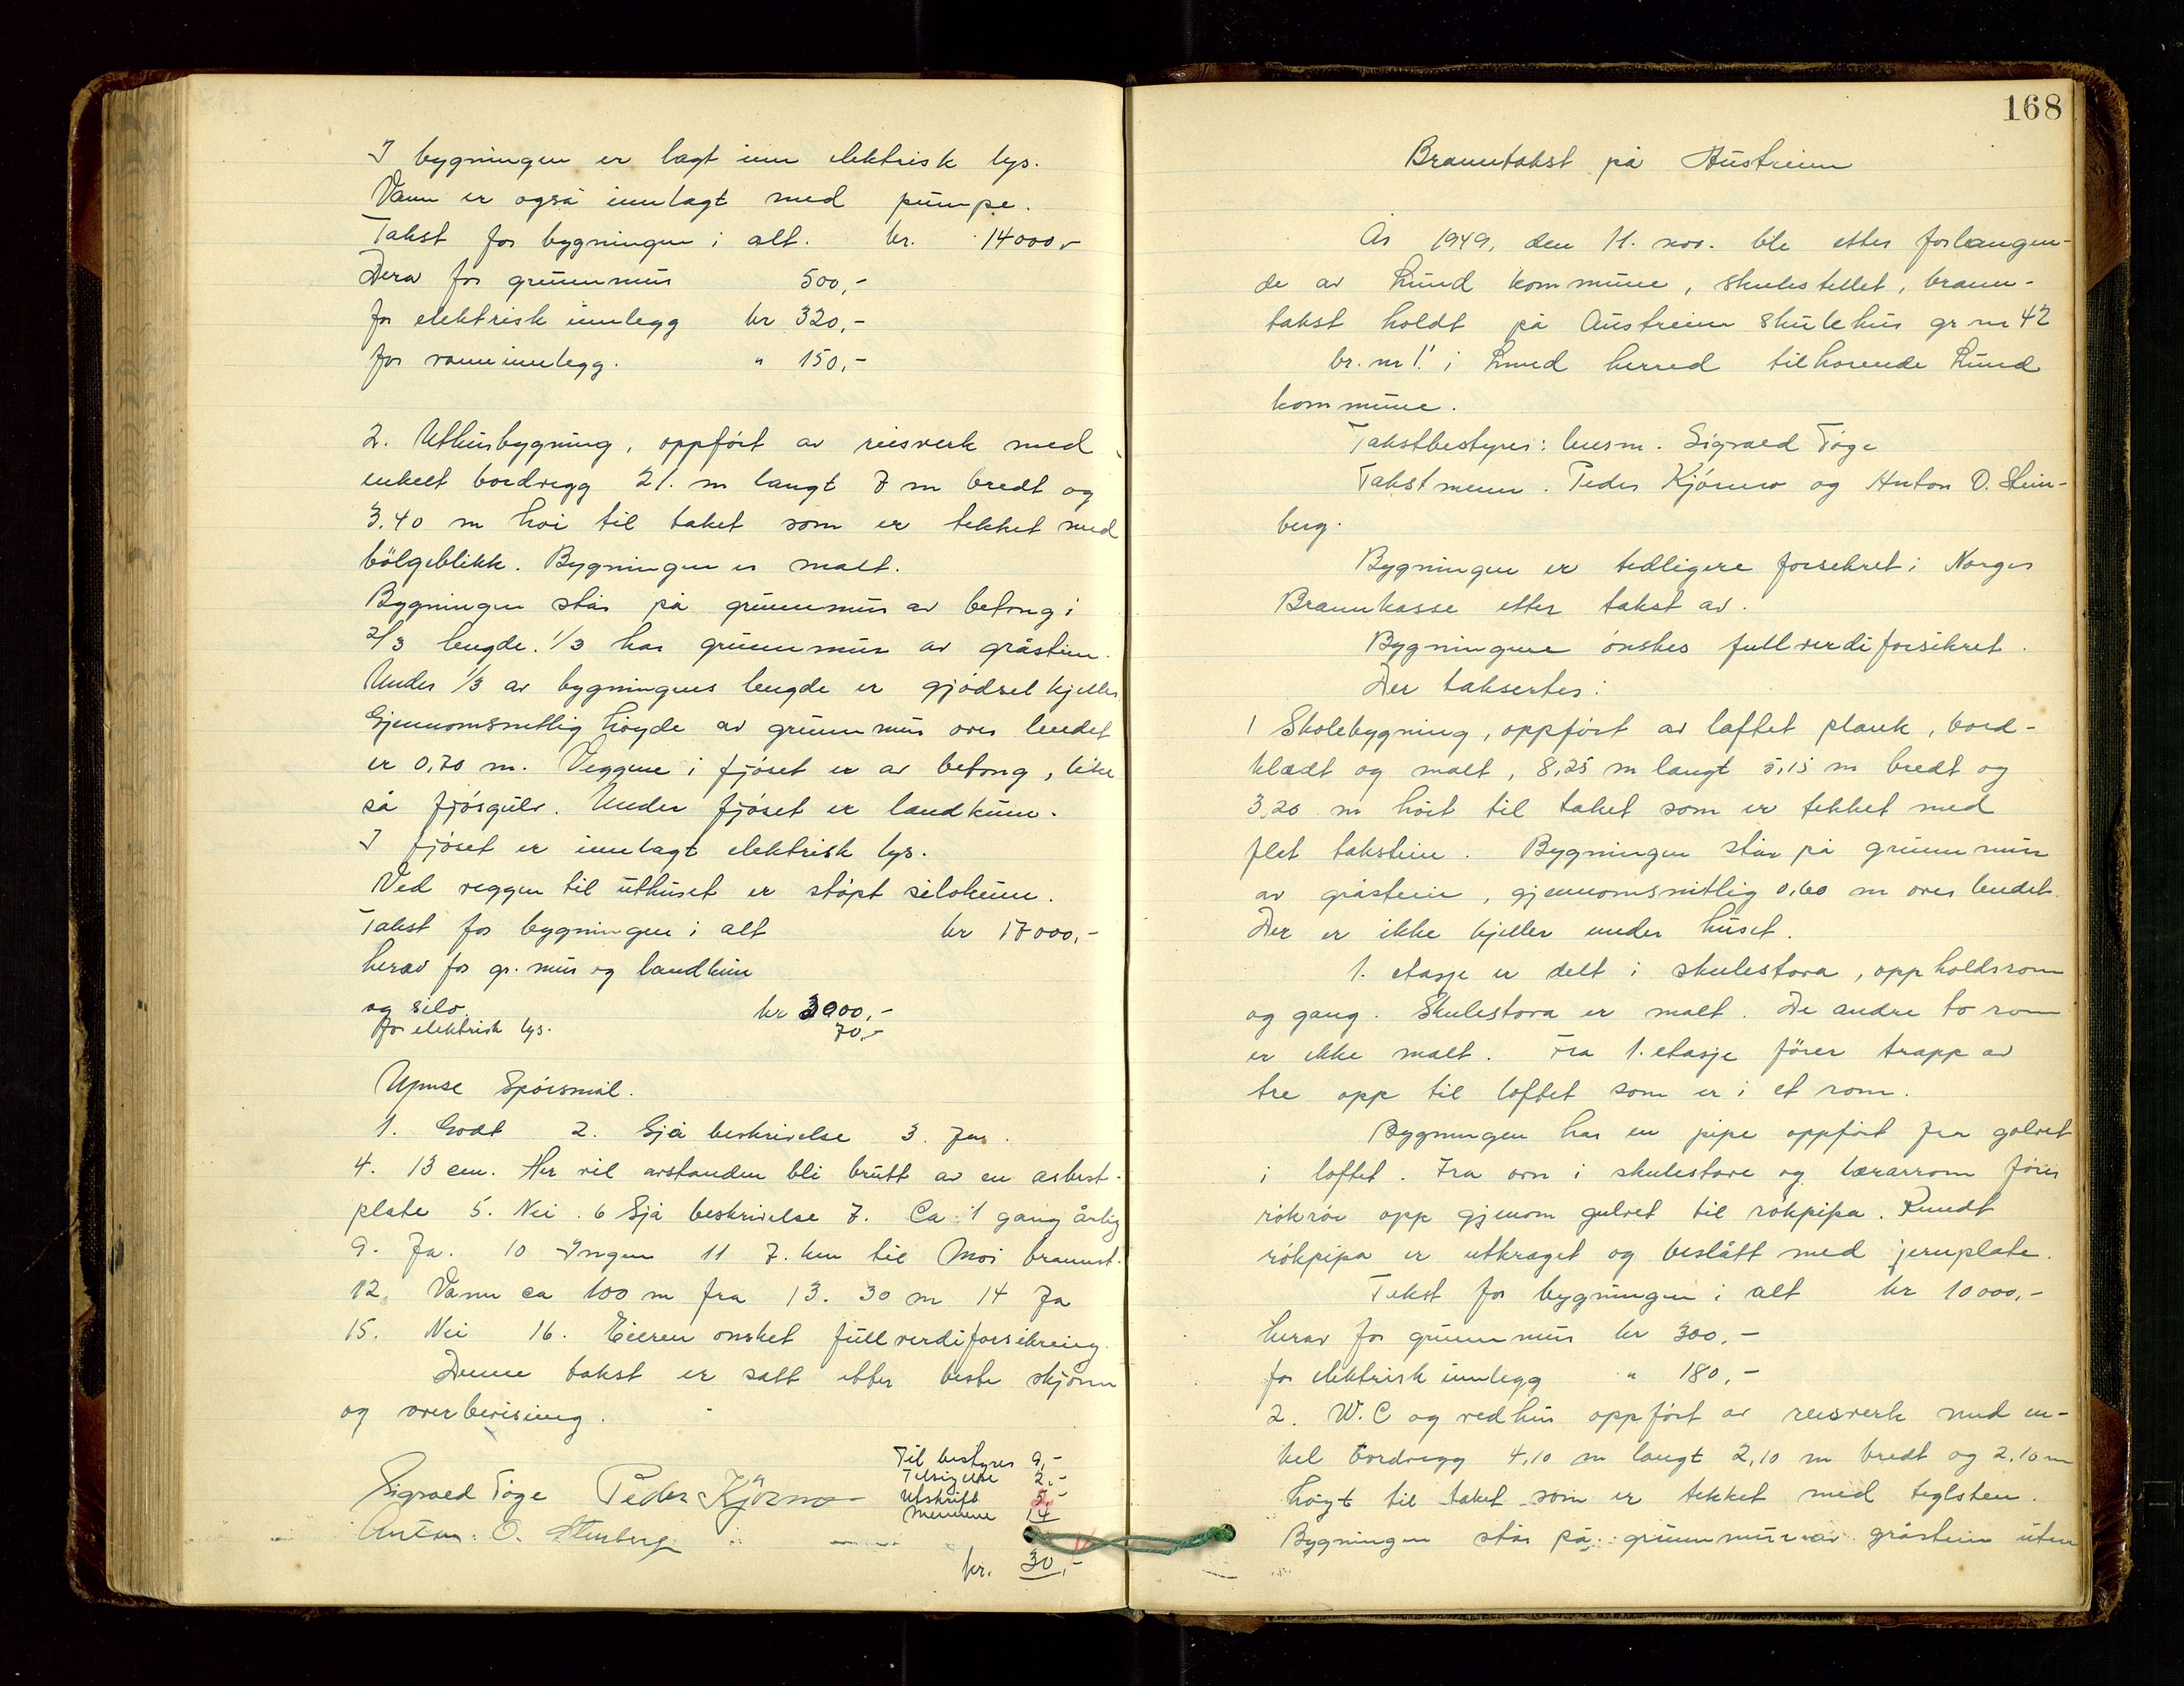 I bygningen er lagt inn elektrisk lys.
Vann er også innlagt med pumpe.
Takst for bygningen i alt. kr. 14000,-
Derav for grunnmur 500,-
for elektrisk innlegg kr 320,-
for vanninnlegg. " 150,-
2. Uthusbygning, oppført av reisverk med
enkelt bordvegg 21. m langt 7 m bredt og
3.40 m høi til taket som er tekket med
bölgeblikk. Bygningen er malt.
Bygningen står på grunnmur av betong i
2/3 lengde. 1/3 har grunnmur av gråstein.
Under 1/3 av bygningens lengde er gjødselkjeller
Gjennomsnittlig høyde av grunnmur over lendet
er 0,70 m. Veggene i fjøset er av betong, like
så fjøsgulv. Under fjøset er landkum.
I fjøset er innlagt elektrisk lys.
Ved veggen til uthuset er støpt silokum.
Takst for bygningen i alt kr 17000,-
herav for gr. mur og landkum
og silo. kr 3000,-
for elektrisk lys. 70,-
Ymse Spørsmål.
1. Godt 2. Sjå beskrivelse 3. Ja.
4. 13 cm. Her vil avstanden bli brutt av en asbest-
plate 5. Nei. 6 Sjå beskrivelse 7. Ca 1 gang årlig
9. Ja. 10 Ingen 11 7. km til Moi brannst.
12. Vann ca 100 m fra 13. 30 m 14 Ja
15. Nei 16. Eieren ønsket fullverdiforsikring.
Denne takst er satt etter beste skjønn
og overbevisning.
Til bestyrer 9,-
Tilsigelse 2,-
Utskrift 5,-
Mennene 14
Sigvald Tøge Peder Kjørmo
Anton. O. Stenberg
kr. 30,-
168
Branntakst på Austreim
År 1949, den 11. nov. ble etter forlangen-
de av Lund kommune, skulestellet, brann-
takst holdt på Austreim skulehus gr nr 42
br. nr 1. i Lund herred tilhørende Lund
kommune.
Takstbestyrer: lensm. Sigvald Tøge
Takstmenn. Peder Kjørmo og Anton O. Stein-
berg.
Bygningen er tidligere forsikret i Norges
Brannkasse etter takst av.
Bygningene ønskes fullverdiforsikret.
Der taksertes:
1 Skolebygning, oppført av laftet plank, bord-
klædt og malt, 8,25 m langt 5,15 m bredt og
3,20 m høit til taket som er tekket med
flat takstein. Bygningen står på grunnmur
av gråstein, gjennomsnitlig 0,60 m over lendet.
Der er ikke kjeller under huset.
1. etasje er delt i skulestova, oppholdsrom
og gang. Skulestova er malt. De andre to rom
er ikke malt. Fra 1. etasje fører trapp av
tre opp til loftet som er i et rom.
Bygningen har en pipe oppført fra golvet
i loftet. Fra ovn i skulestove og lærarrom fører
rökrör opp gjenom gulvet til rökpipa. Rundt
rökpipa er utkraget og beslått med jernplate.
Takst for bygningen i alt kr 10000,-
herav for grunnmur kr 300,-
for elektrisk innlegg " 180,-
2. W.C og vedhus oppført av reisverk med en-
kel bordvegg 4,10 m langt 2,10 m bredt og 2,10 m
høyt til taket som er tekket med teglsten.
Bygningen står på grunnmur av gråstein uten